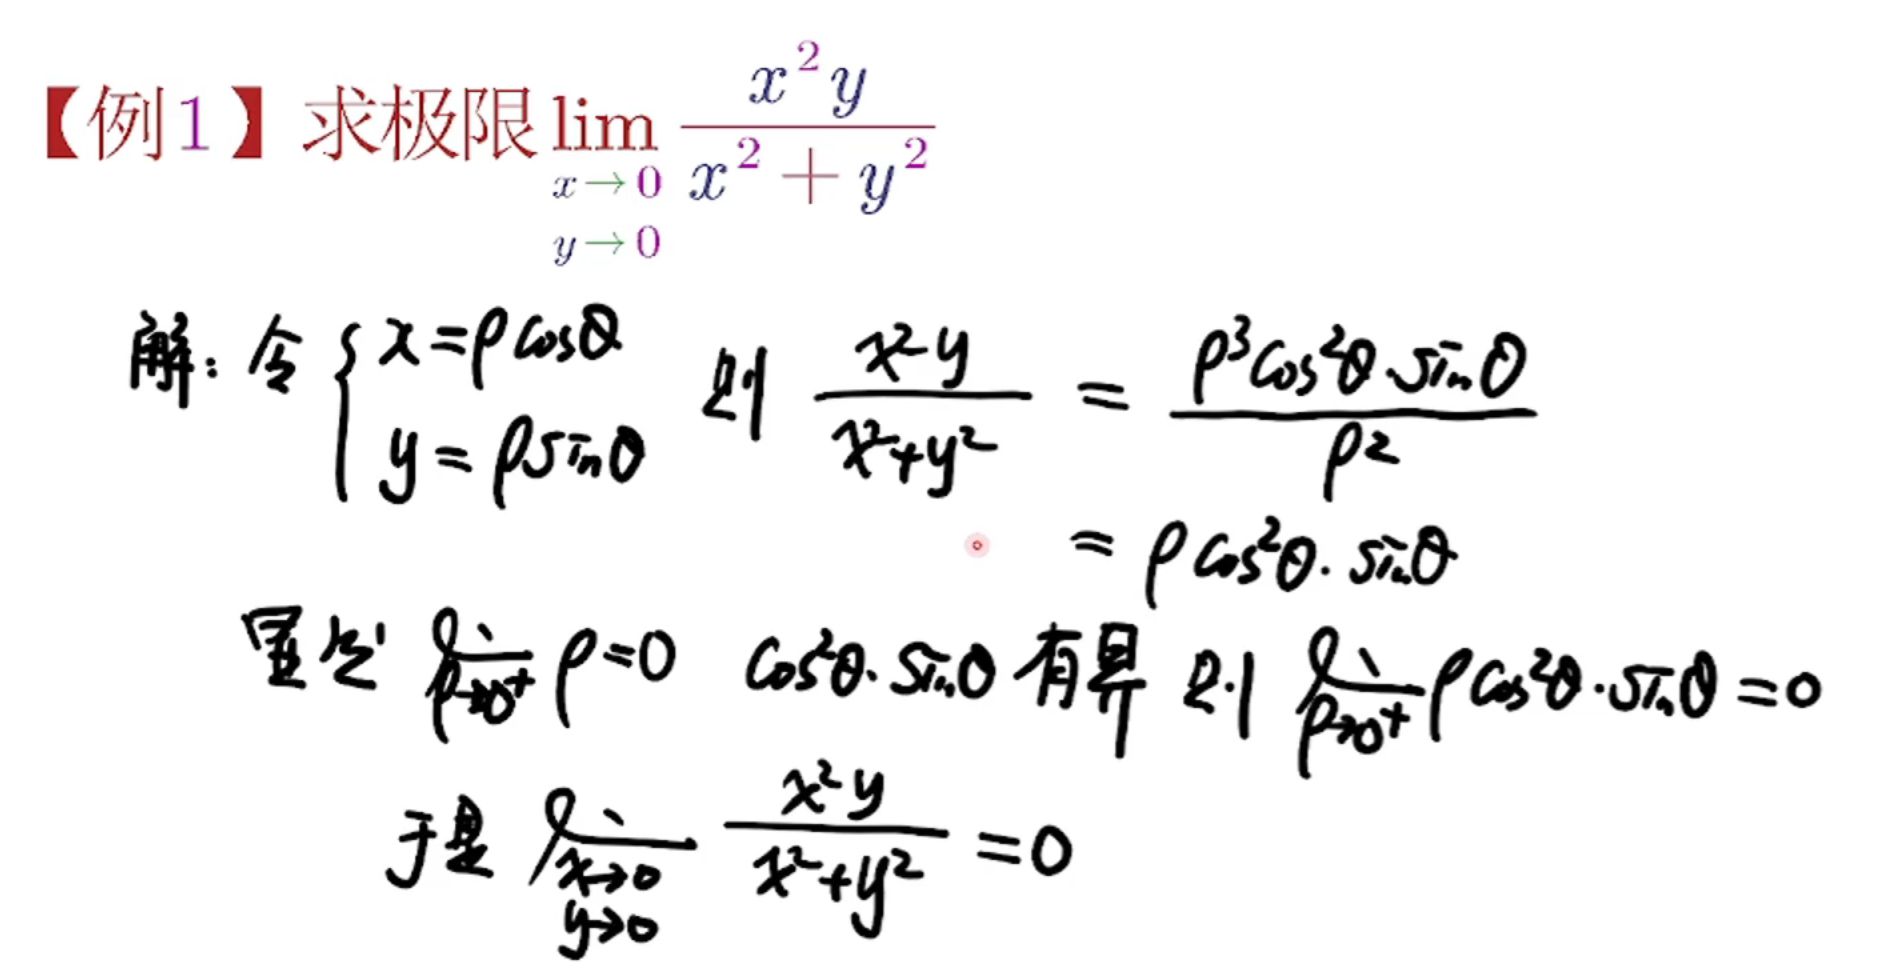 【例1】求极限 lim x→0 y→0 x²y / (x²+y²)
解: 令 { x=ρcosθ y=ρsinθ 则 x²y / (x²+y²) = ρ³cos²θ·sinθ / ρ²
= ρcos²θ·sinθ
显然 lim ρ→0⁺ ρ=0 cos²θ·sinθ 有界 则 lim ρ→0⁺ ρcos²θ·sinθ=0
于是 lim x→0 y→0 x²y / (x²+y²) =0